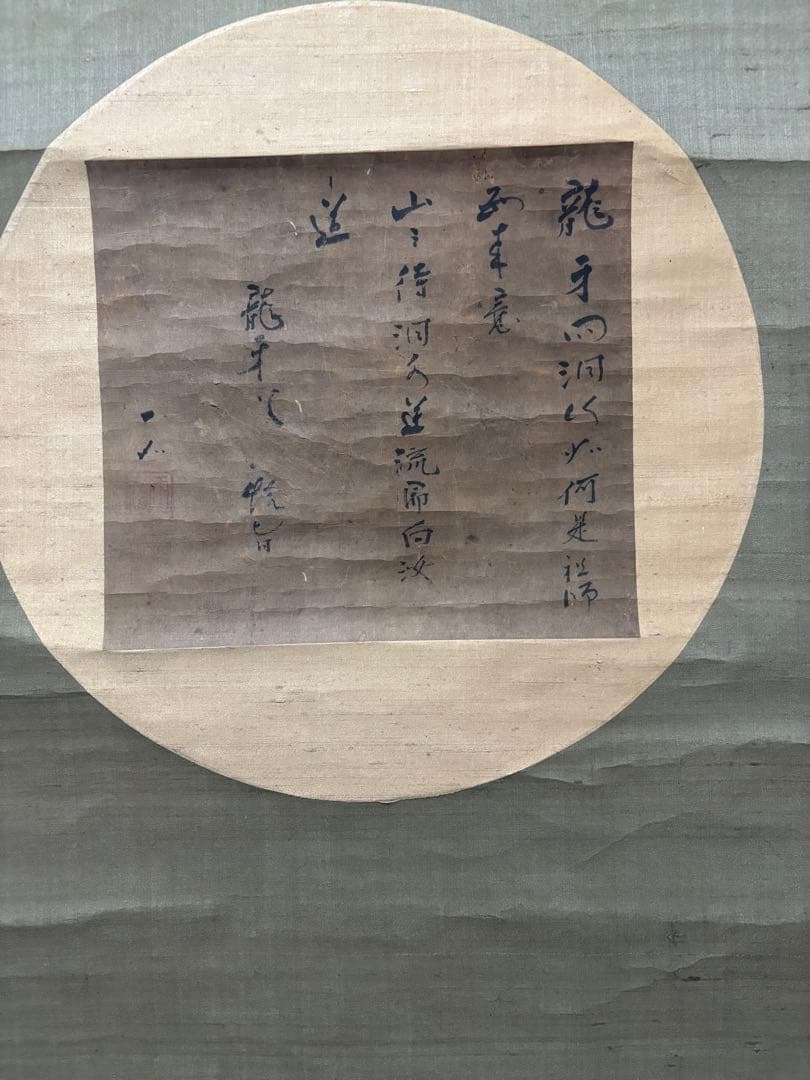 龍牙問洞山如何是祖師
西来意
山〻待洞水逆流即向汝
道
龍牙於
悟旨